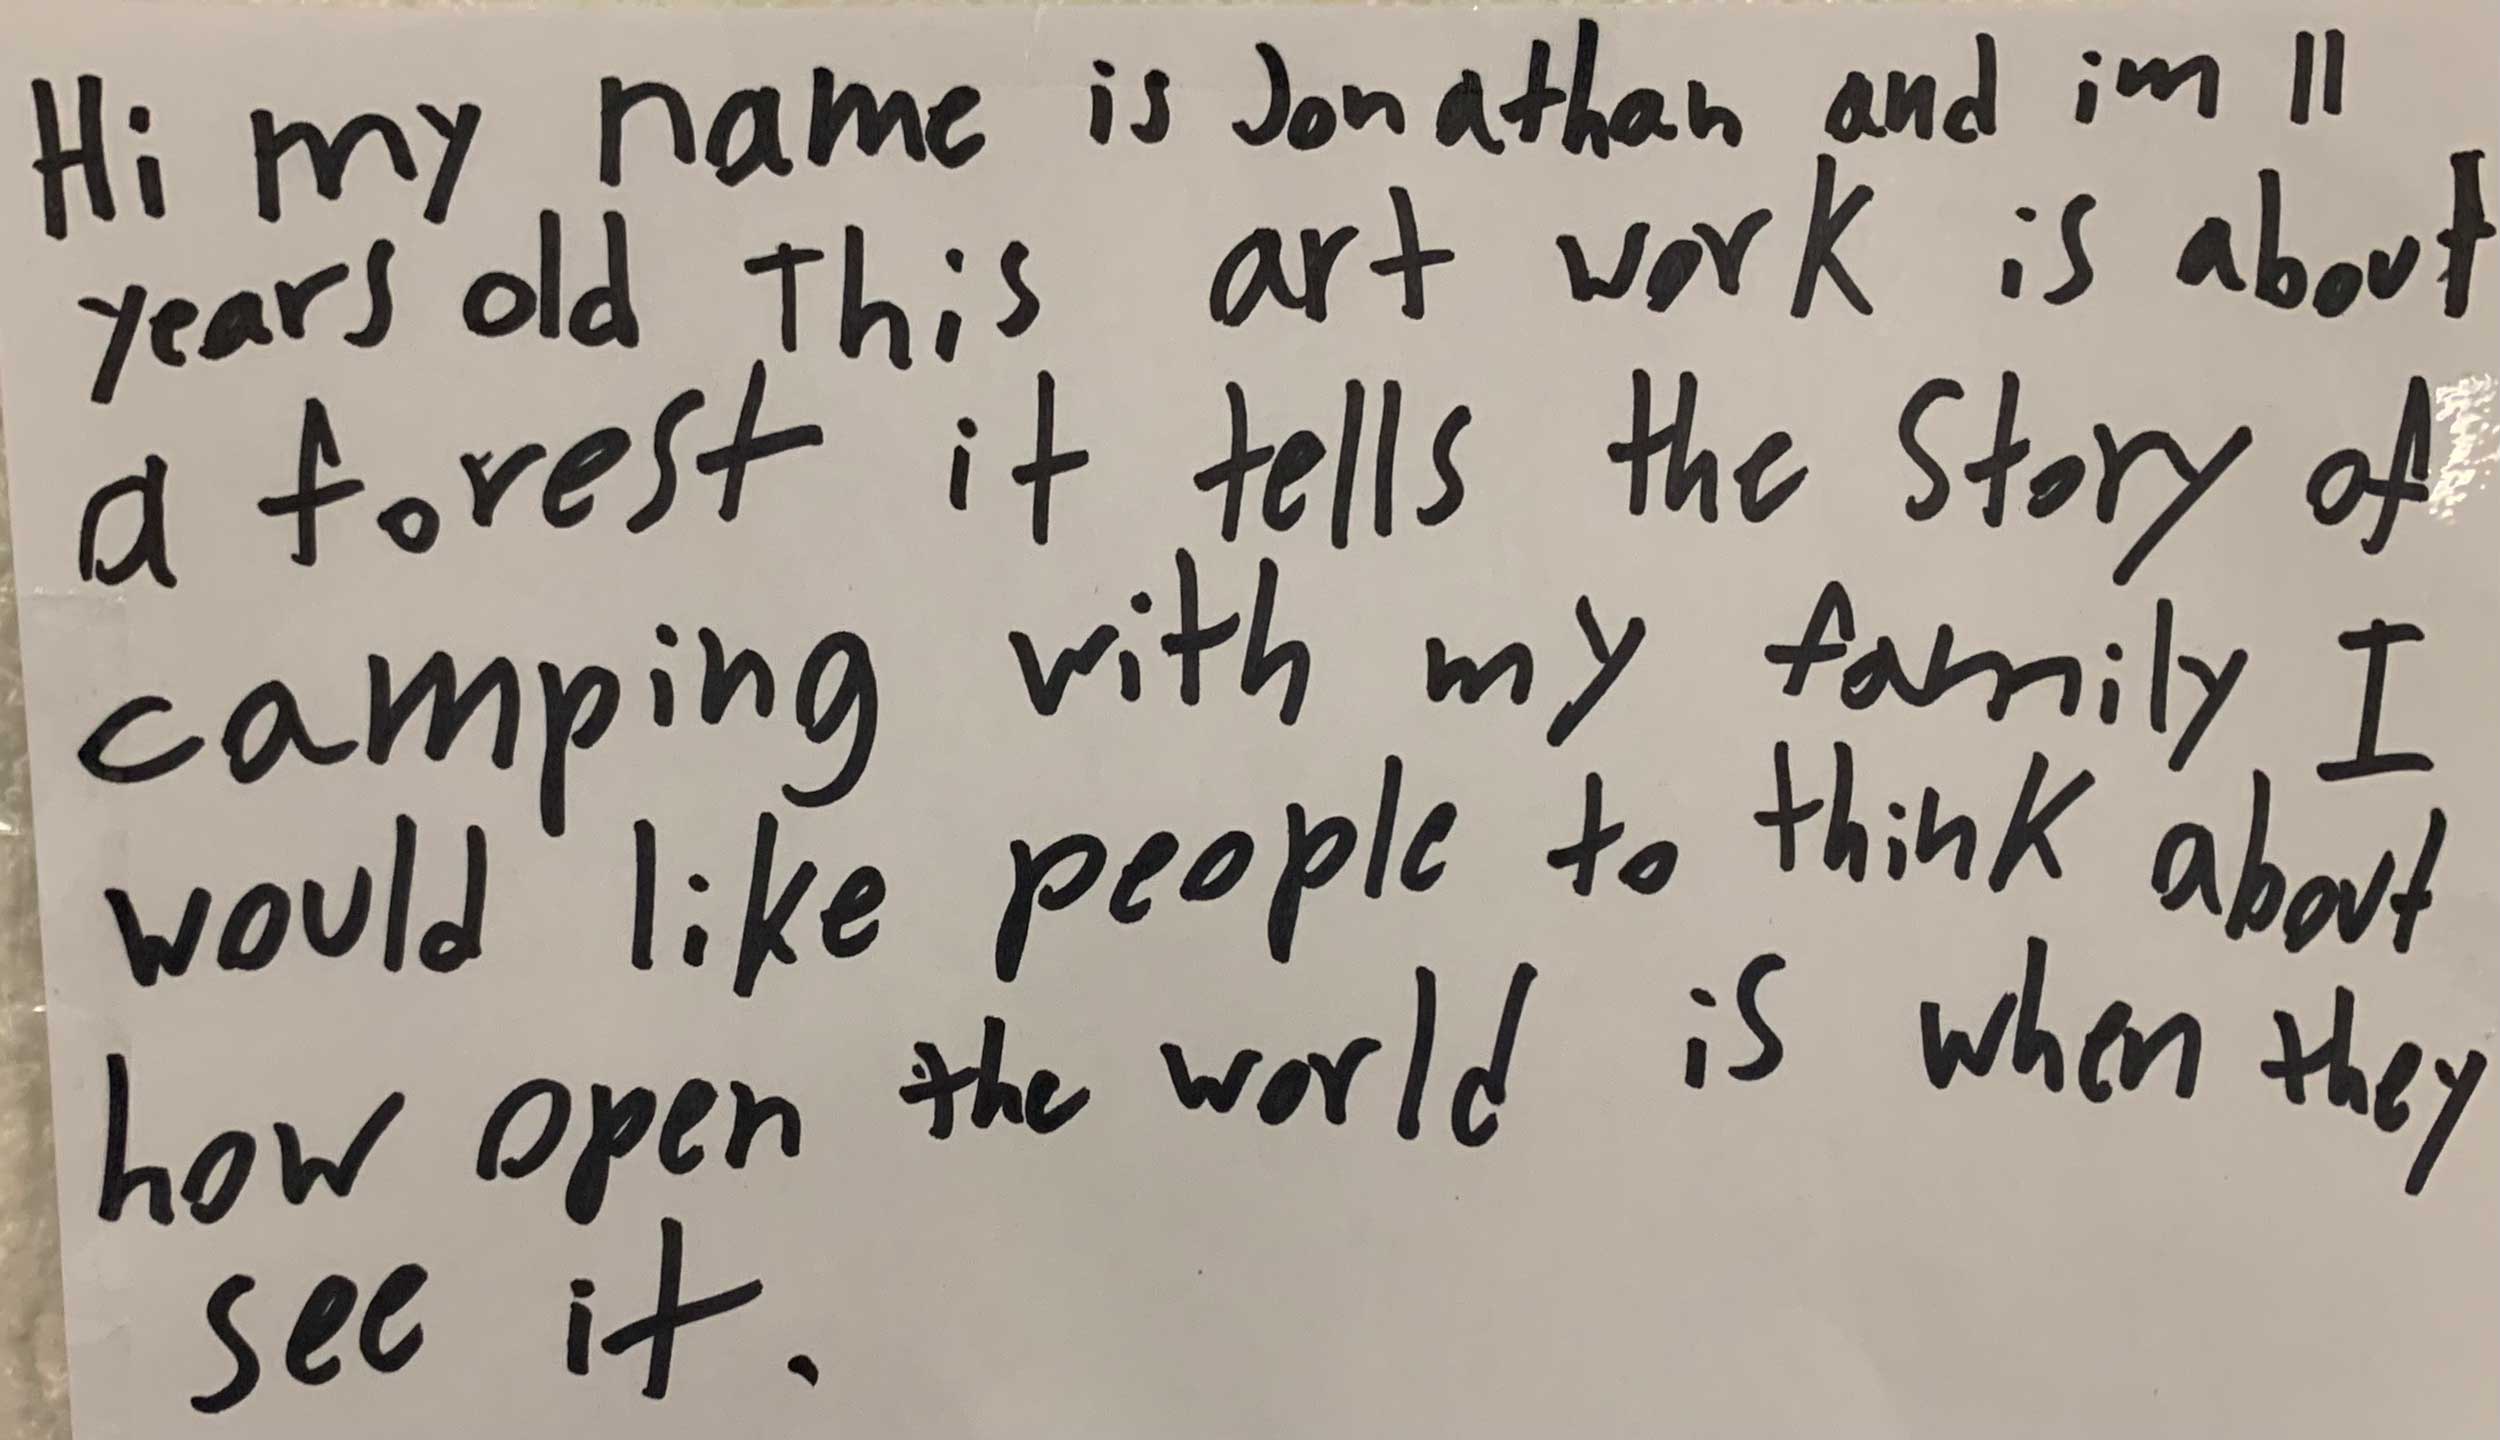 Hi my name is Jonathan and im 11
years old This art work is about
a forest it tells the Story of
camping with my family I
would like people to think about
how open the world is when they
see it.